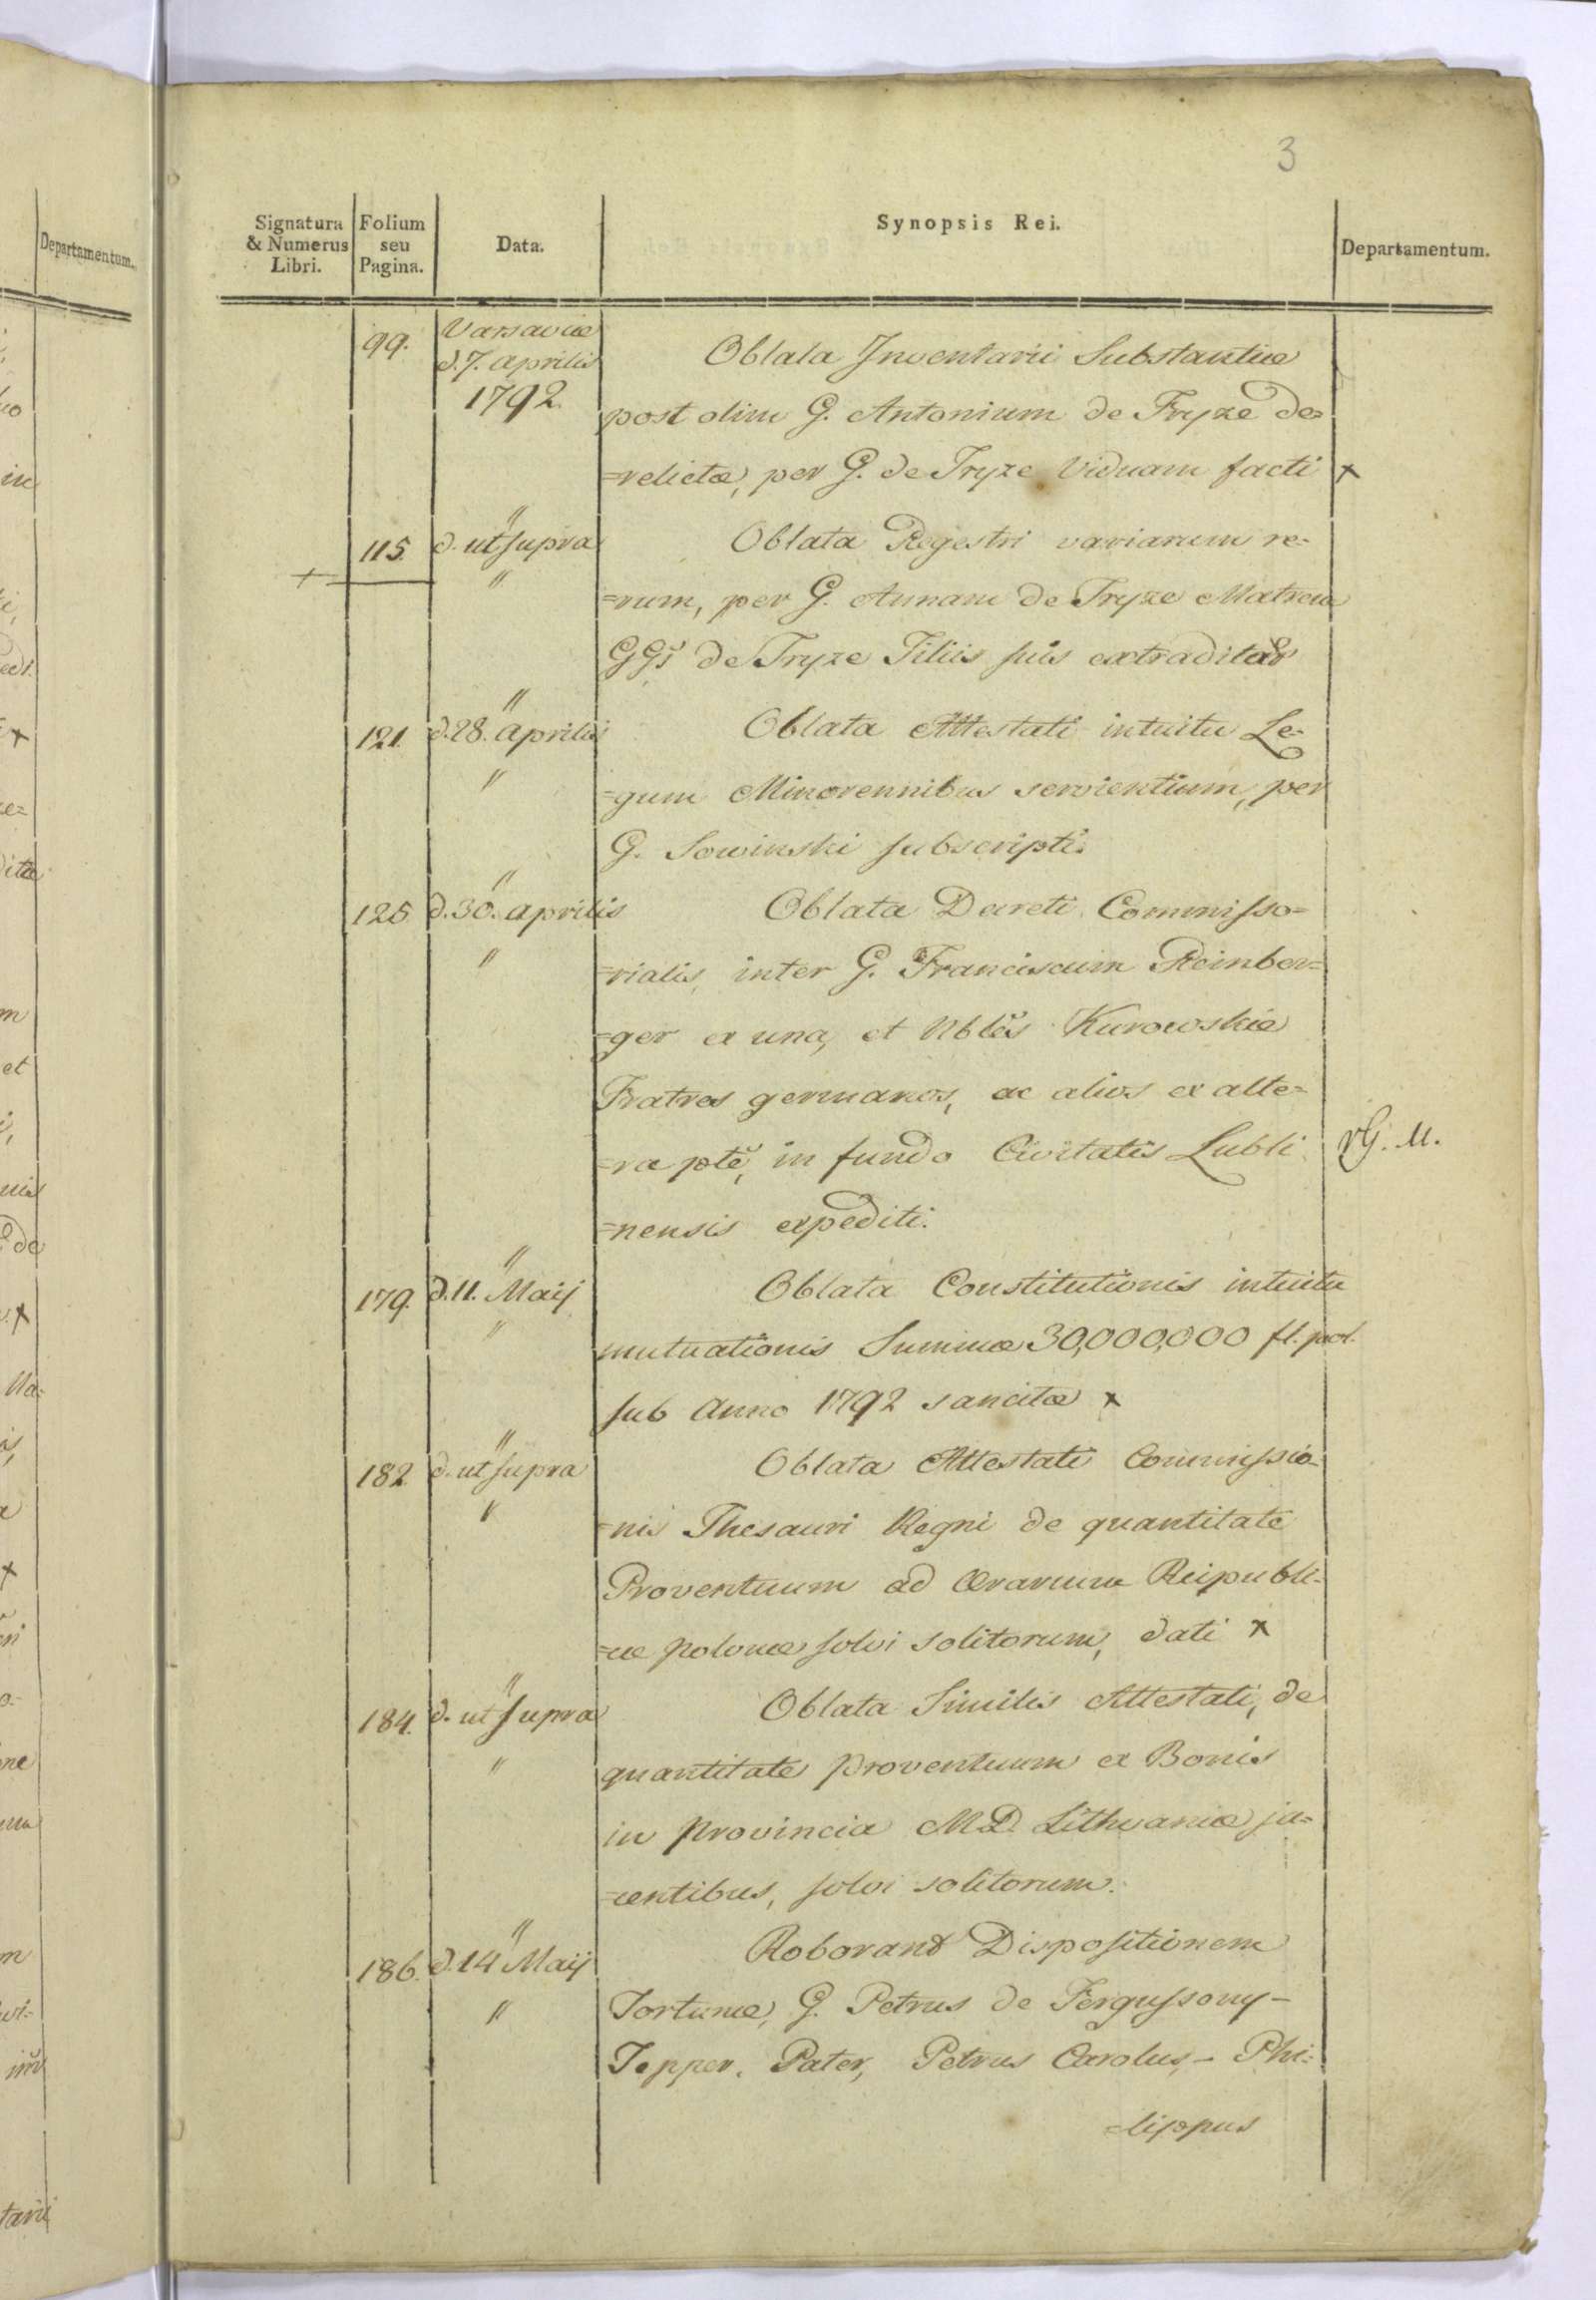 3
Signatura & Numerus Libri.
Folium seu Pagina.
Data.
Synopsis Rei.
Departamentum.
99. Varsaviæ
d. 7. Aprilis
1792.
Oblata Inventarii Substantiæ
post olim G. Antonium de Fryze de=
=relictæ, per G. de Fryze Viduam facti x
115. d. ut supra
Oblata Regestri variarum re=
=rum, per G. Annam de Fryze Matrem
GG̃s de Fryze Filiis suis extraditar
121. d. 28. Aprilis
Oblata Attestati intuitu Le=
=gum Minorennibus servientium, per
G. Sowinski subscripti.
125. d. 30. Aprilis
Oblata Decreti Commisso=
=rialis, inter G. Franciscum Reinber=
=ger ex una, et Nblẽs Kurowskie
Fratres germanos, ac alios ex alte=
=ra ptẽ, in fundo Civitatis Lubli
=nensis expediti.
179. d. 11. Maij
Oblata Constitutionis intuitu
mutuationis Summæ 30,000,000 fl. pol.
sub Anno 1792 sancitæ x
182. d. ut supra
Oblata Attestati Commissio=
=nis Thesauri Regni de quantitate
Proventuum ad Ærarium Reipubli=
=cæ polonæ solvi solitorum, dati x
184. d. ut supra
Oblata Similis Attestati, de
quantitate proventuum ex Bonis
in Provincia M.D. Lithvaniæ ja=
=centibus, solvi solitorum.
186. d. 14 Maij
Roborant Dispositionem
Fortunæ, G. Petrus de Fergussony-
Tepper. Pater, Petrus Carolus,- Phi=
=lippus